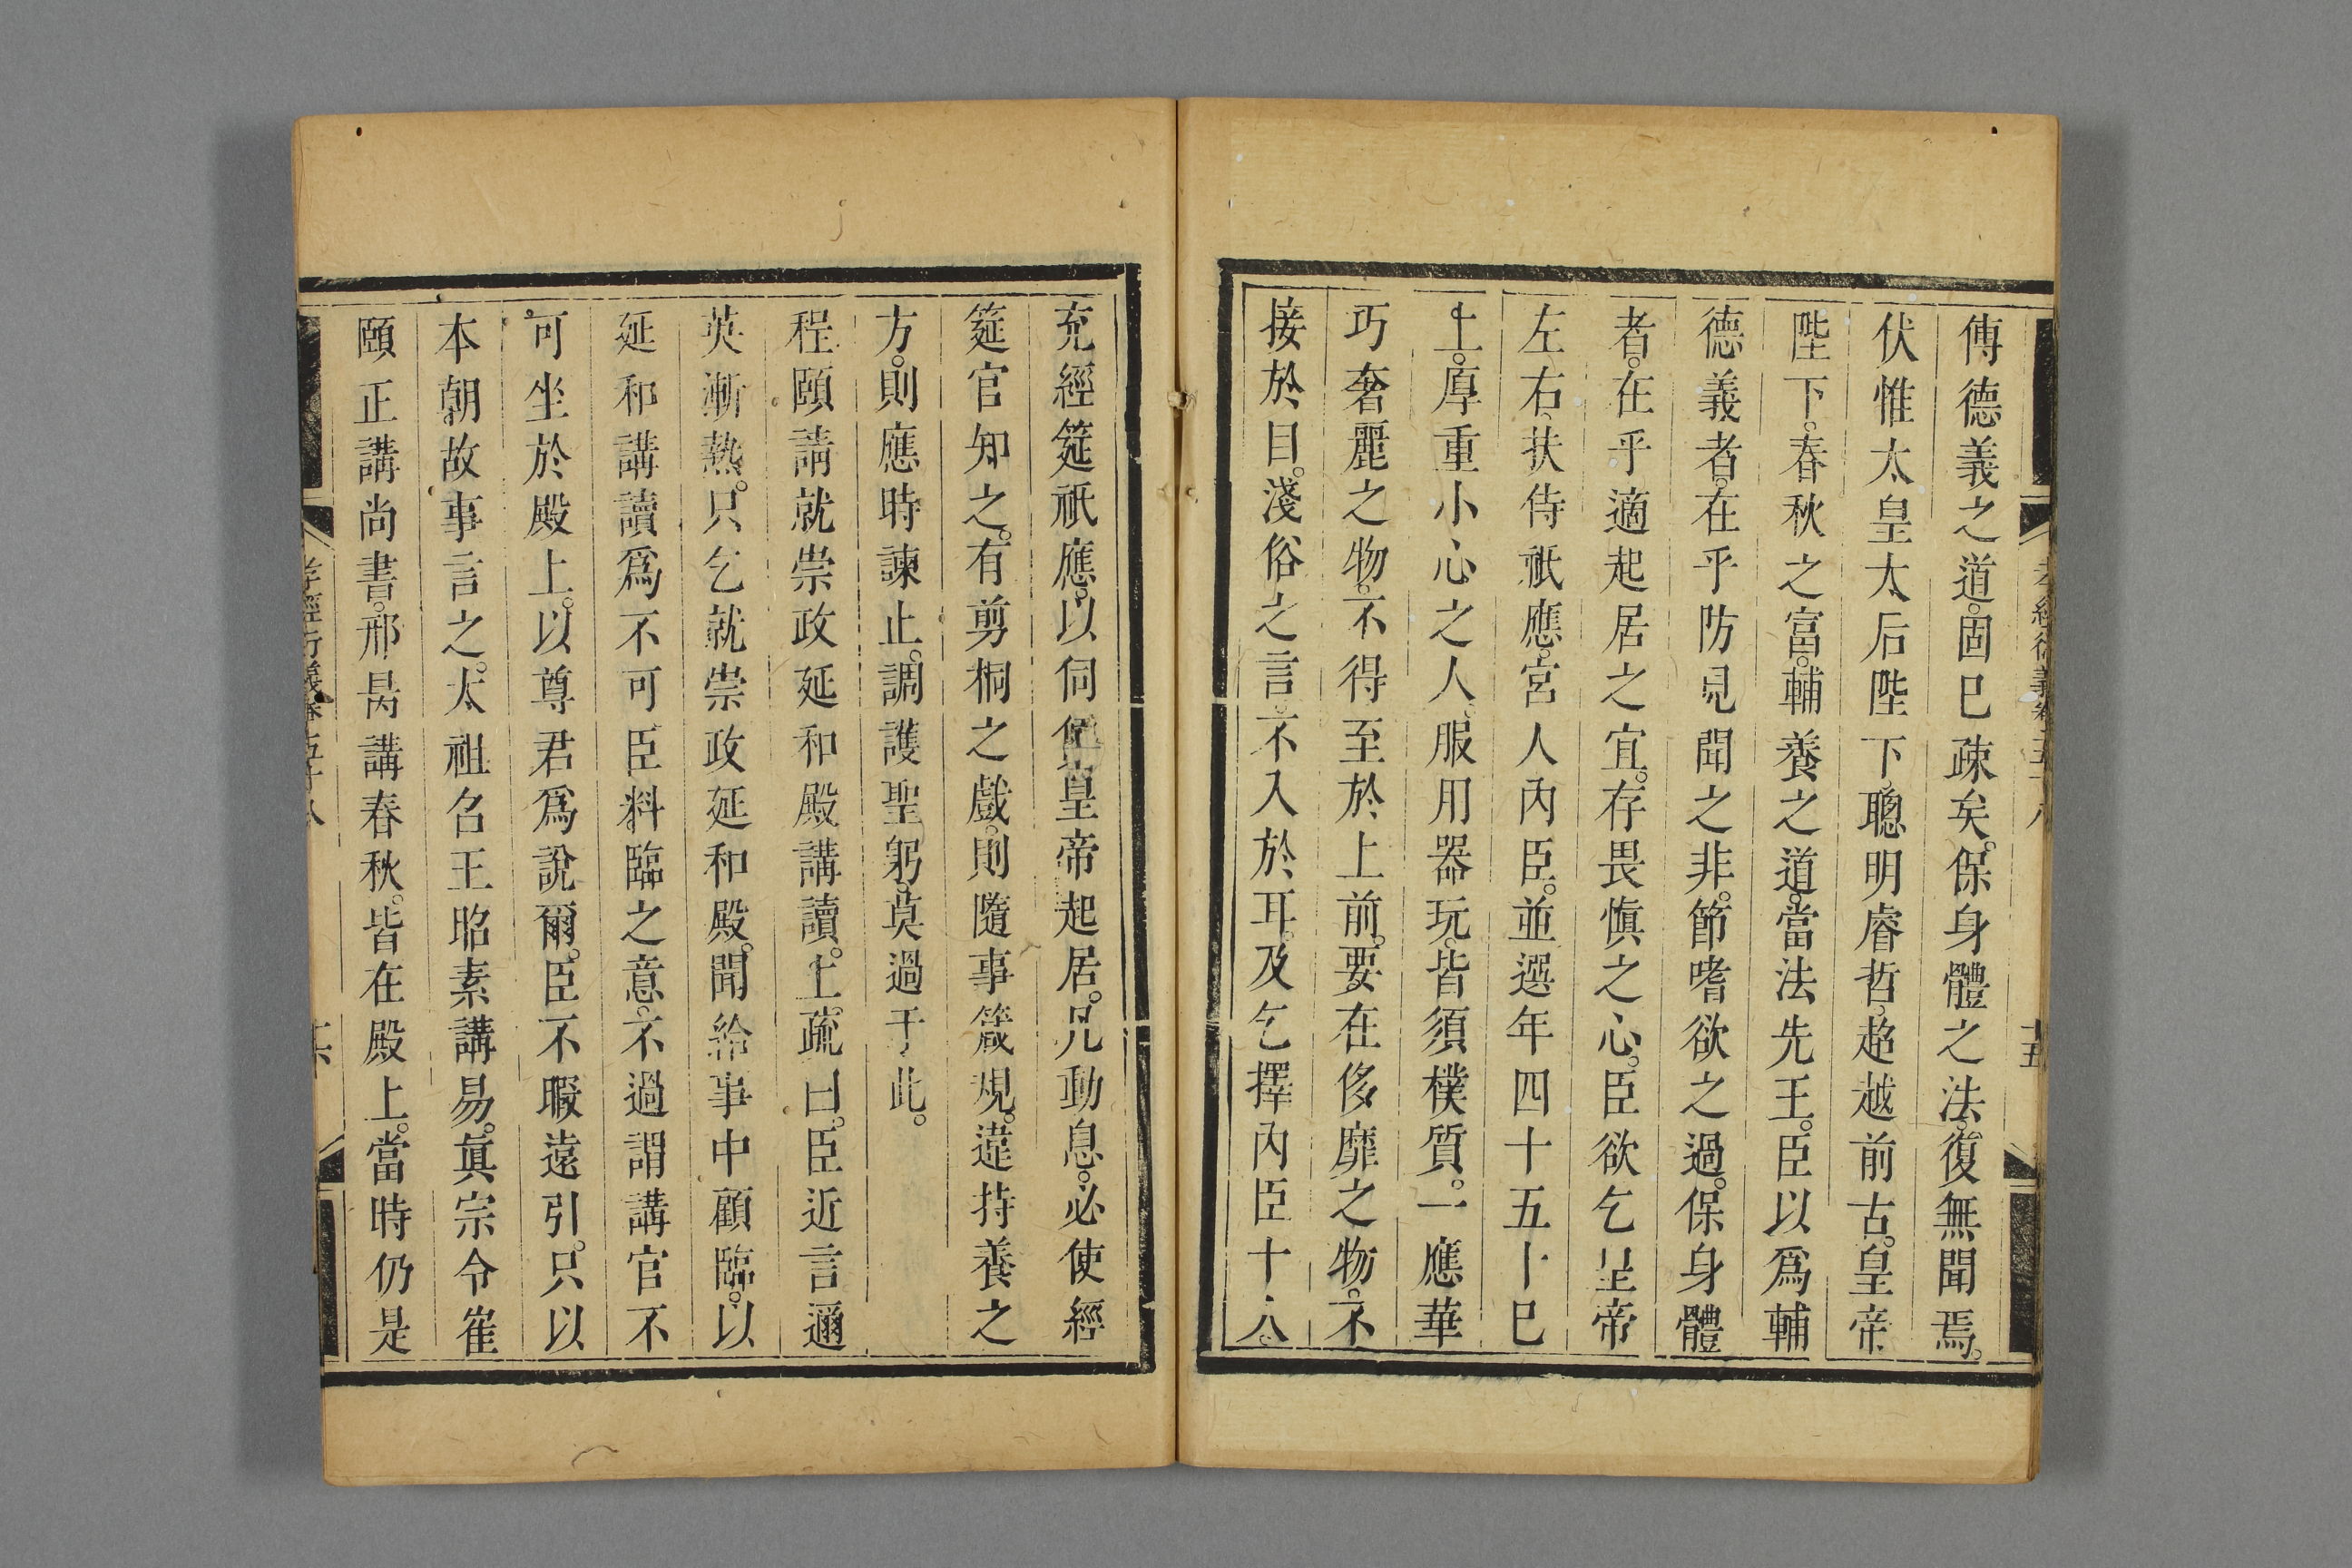 傳德義之道。固已疎矣。保身體之法。復無聞焉。
伏惟太皇太后陛下。聰明睿哲。超越前古。皇帝
陛下。春秋之富。輔養之道。當法先王。臣以爲輔
德義者。在乎防見聞之非。節嗜欲之過。保身體
者。在乎適起居之宜。存畏愼之心。臣欲乞皇帝
左右。扶侍祇應。宮人內臣。並選年四十五十已
上。厚重小心之人。服用器玩。皆須樸質。一應華
巧奢麗之物。不得至於上前。要在侈靡之物。不
接於目。淺俗之言。不入於耳。及乞擇內臣十人。
充經筵祇應。以伺候皇帝起居。凡動息。必使經
筵官知之。有剪桐之戲。則隨事箴規。違持養之
方。則應時諫止。調護聖躬。莫過于此。
程頤請就崇政延和殿講讀。上疏曰。臣近言邇
英漸熱。只乞就崇政延和殿。聞給事中顧臨。以
延和講讀爲不可。臣料臨之意。不過謂講官不
可坐於殿上。以尊君爲說爾。臣不暇遠引。只以
本朝故事言之。太祖召王昭素講易。眞宗令崔
頤正講尚書。邢昺講春秋。皆在殿上。當時仍是